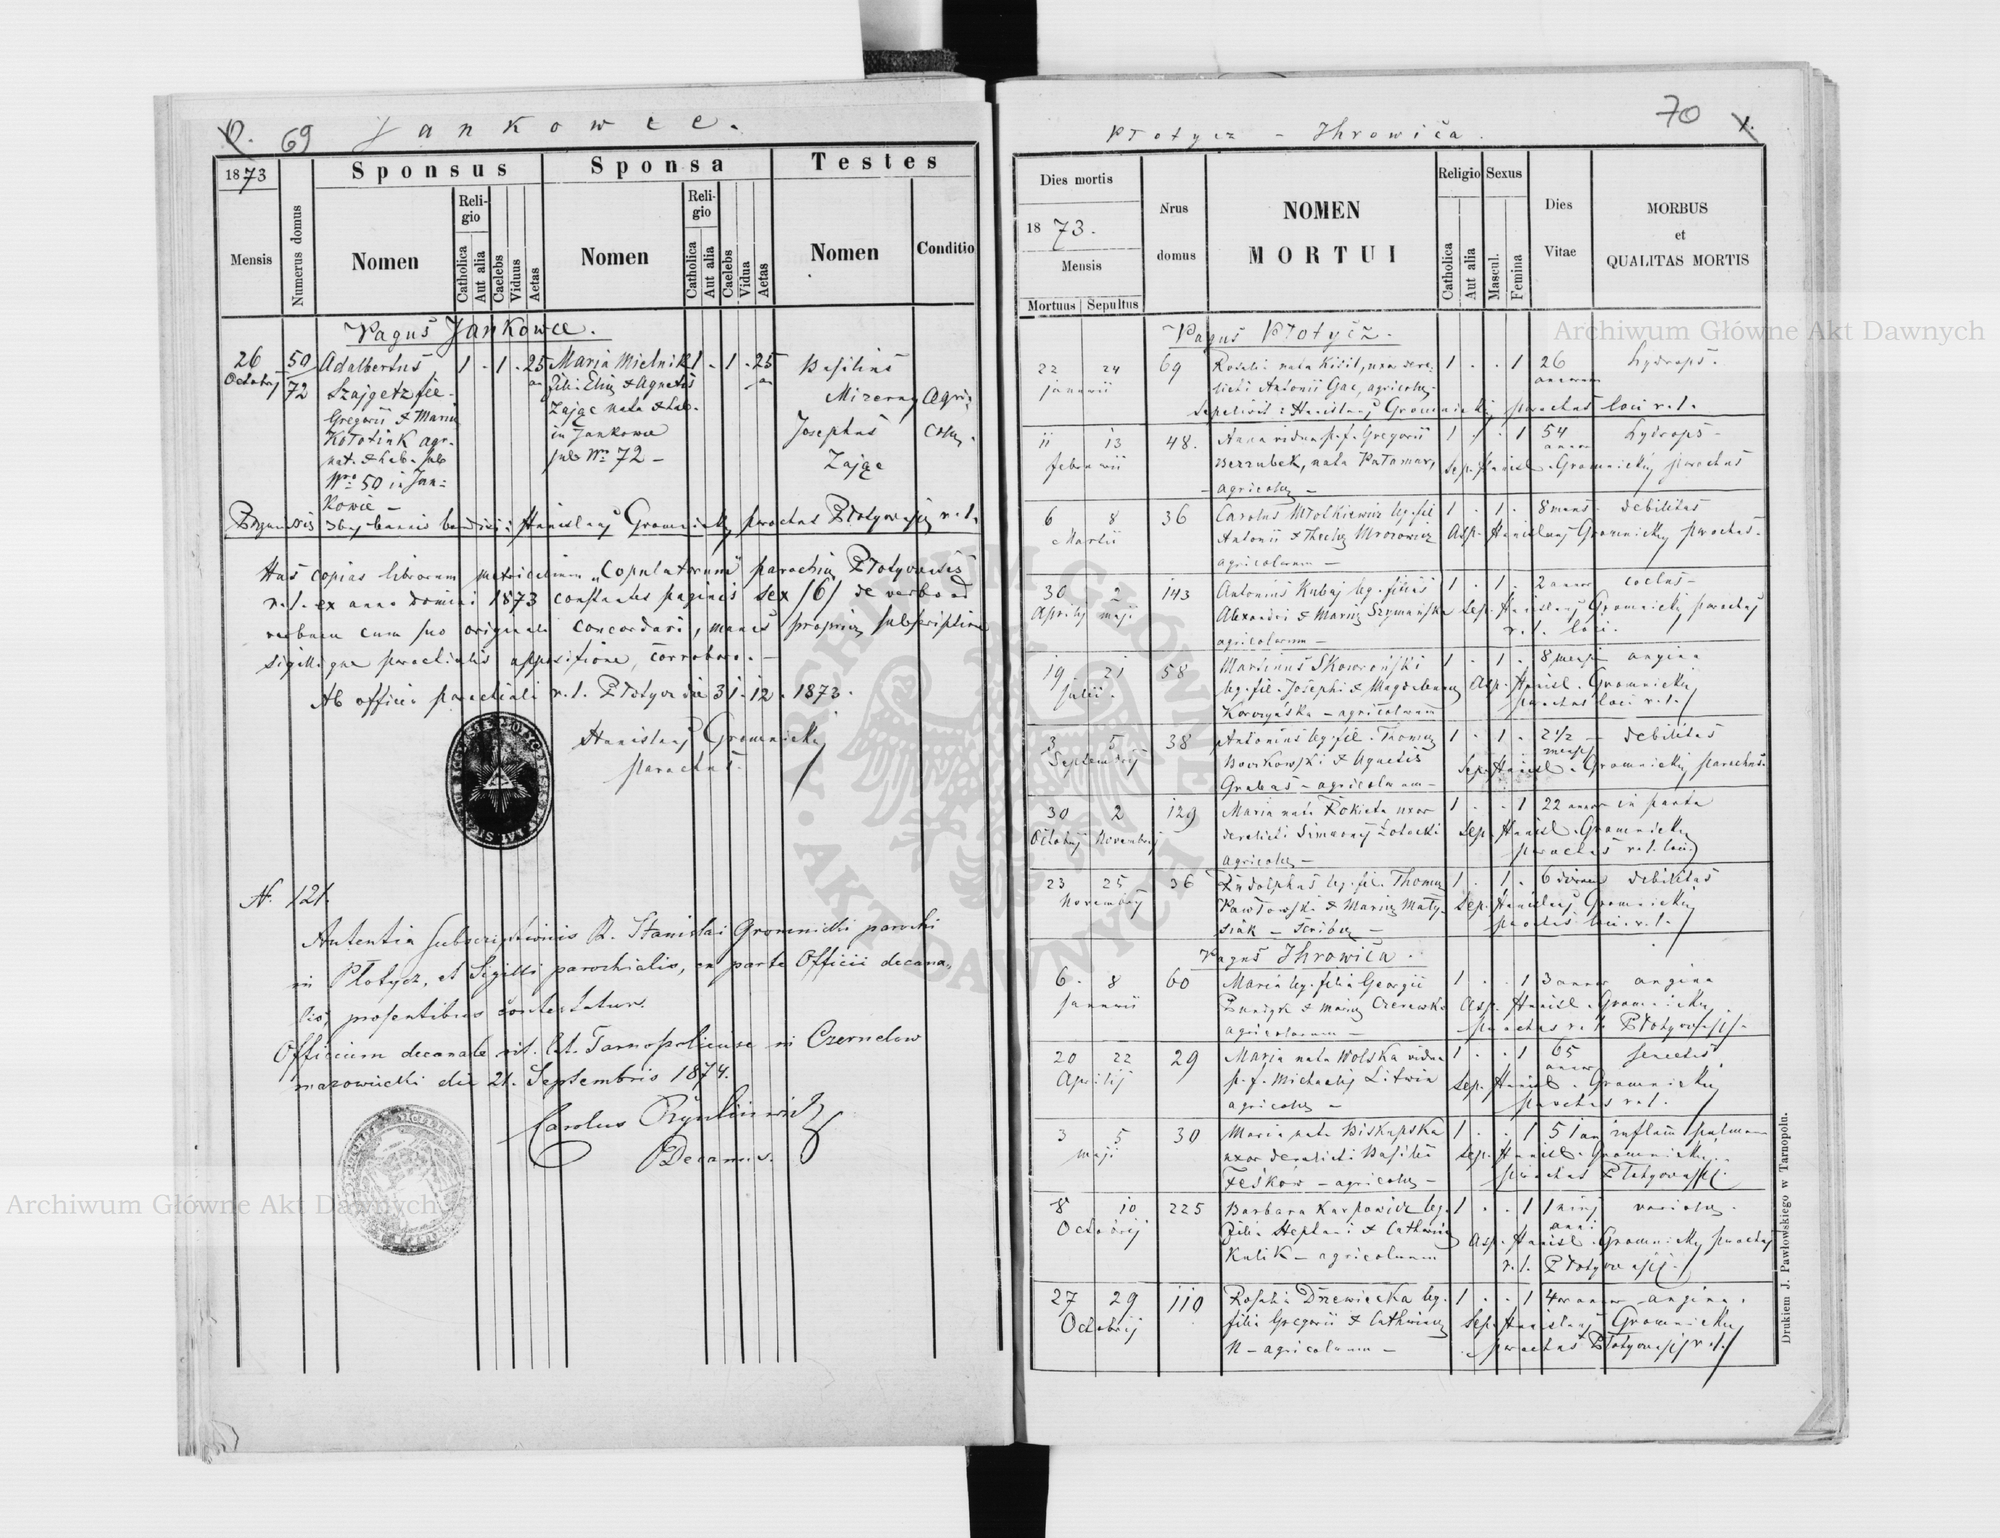 69 Jankowce.
1873
Sponsus
Sponsa
Testes
Mensis
Numerus domus
Nomen
Religio
Catholica
Aut alia
Caelebs
Viduus
Aetas
Nomen
Religio
Catholica
Aut alia
Caelebs
Vidua
Aetas
Nomen
Conditio
Pagus Jankowce.
26 50 Adalbertus 1 . 1 . 25 Maria Mielnik 1 . 1 . 25 Basilius
Octobrij 72 Szajgetz fil. filia Eliae & Agnetis Mizerny Agri-
Gregorii & Mariae Zając nata & hab. Josephus colae.
Kołotink agr. in Jankowce Zając
nat. & hab. sub sub Nro 72 -
Nro 50 in Jan-
kowce -
benedixit: Stanislaus Gromnicki, parochus Płotycensis r. l.
Has copias librorum metricalium "Copulatorum" parochiae Płotycensis
r. l. ex anno Domini 1873 constantes paginis sex /6/ de verbo ad
verbum cum suo originali concordari, manus propriae subscriptione
sigillique parochialis appositione, corroboro. -
Ab officio parochiali r. l. Płotycz die 31. 12. 1873.
Stanislaus Gromnicki
parochus.
N. 121.
Autentia subscriptionis R. Stanislai Gromnicki parochi
in Płotycz, et Sigilli parochialis, ex parte Officii decana-
lis, presentibus contestatur.
Officium decanale rit. lat. Tarnopoliense in Czernelow
mazowiecki die 21. Septembris 1874.
Carolus
Decanus.
70
Płotycz - Ihrowica.
Dies mortis
1873.
Mensis
Mortuus
Sepultus
Nrus
domus
NOMEN
MORTUI
Religio
Catholica
Aut alia
Sexus
Mascul.
Femina
Dies
Vitae
MORBUS
et
QUALITAS MORTIS
Pagus Płotycz.
22 24 69 Rosalia nata Kisil, uxor dere- 1 . . 1 26 hydrops.
januarii licti Antonii Gac, agricolae. annorum
Sepelivit: Stanislaus Gromnicki, parochus loci r. l.
11 13 48. Anna vidua p. f. Gregorii 1 . . 1 54 hydrops -
februarii Bezzubek, nata Patamar, Sep. Stanisl. Gromnicki, parochus
agricolae -
6 8 36 Carolus Wołkiewicz leg. fil 1 . 1 . 8 mens. debilitas
Martii Antonii & Theclae Mrozowicz Asp. Stanislaus Gromnicki parochus.
agricolarum -
30 2 143 Antonius Kubaj leg. filius 1 . 1 . 2 annor
Aprilij maji Alexandri & Mariae Szymańska Sep. Stanislaus Gromnicki parochus
agricolarum - r. l. loci.
19 21 58 Marianus Skoworoński 1 . 1 . 8 mensi angina
julii. leg. fil. Josephi & Magdalenae Asp. Stanisl. Gromnicki
Korczyńska - agricolarum parochus loci r. l.
3 5 38 Antonius leg. fil. Thomae 1 . 1 . 2 1/2 - debilitas
Septembrij Borkowski & Agnetis mensij Sep. Stanisl. Gromnicki parochus.
Grabas - agricolarum -
30 2 129 Maria nata Rokieta uxor 1 . . 1 22 annor in partu
Octobrij Novembrij derelicti Simeonij Zołocki Sep. Stanisl. Gromnicki
agricolae - parochus r. l. loci
23 25 36 Rudolphus leg. fil. Thomae 1 . 1 . 6 dierum debilitas
Novembrij Pawłowski & Mariae Maty- Sep. Stanislaus Gromnicki
siak - scribae - parochus loci r. l.
Pagus Ihrowica.
6. 8 60 Maria leg. filia Georgii 1 . . 1 3 annor angina
januarii & Mariae Czerewko Asp. Stanisl. Gromnicki
agricolarum - parochus r. l. Płotycensis.
20 22 29 Maria nata Wolska vidua 1 . . 1 65 senectus
Aprilij p. f. Michaelij Litwin annor Sep. Stanisl. Gromnicki
agricolae - parochus r. l.
3 5 30 Maria nata Biskupska 1 . . 1 51 an inflam pulmon
maji uxor derelicti Basilii Sep. Stanisl. Gromnicki
Feśkow - agricolae - parochus Płotycensis.
8 10 225 Barbara Karpowicz leg. 1 . . 1 1 variolae.
Octobrij filia Stephani & Catharinae anni Asp. Stanisl. Gromnicki parochus
Kulik - agricolarum r. l. Płotycensis.
27 29 110 Rosalia Drzewiecka leg. 1 . . 1 4or annor angina.
Octobrij filia Gregorii & Catharinae Sep. Stanislaus Gromnicki
N - agricolarum - parochus Płotycensis r. l.
Drukiem J. Pawłowskiego w Tarnopolu.
Archiwum Główne Akt Dawnych
Archiwum Główne Akt Dawnych
ARCHIWUM GŁÓWNE AKT DAWNYCH